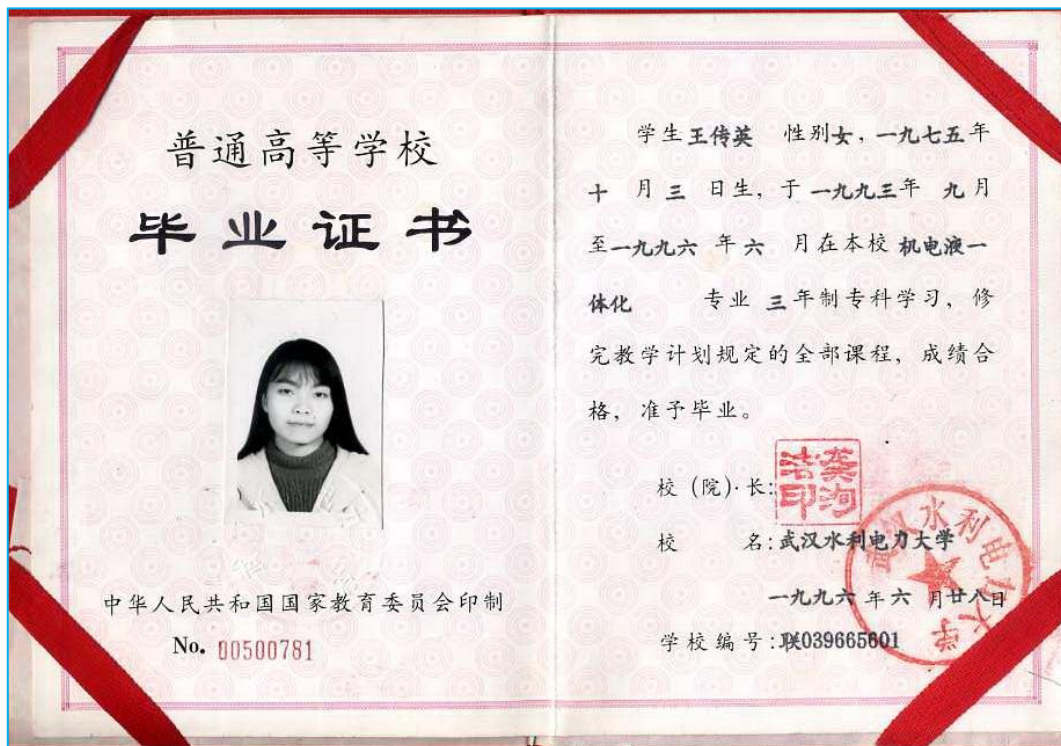 普通高等学校
毕业证书
中华人民共和国国家教育委员会印制
No. 00500781
学生 王传英 性别 女, 一九七五年
十 月 三 日生, 于 一九九三年 九月
至 一九九六 年 六 月在本校 机电液一
体化 专业 三 年制专科学习, 修
完教学计划规定的全部课程, 成绩合
格, 准予毕业。
校 (院)·长:
校 名: 武汉水利电力大学
武汉水利电力大学
一九九六 年 六 月 廿八日
学校编号: 联039665601